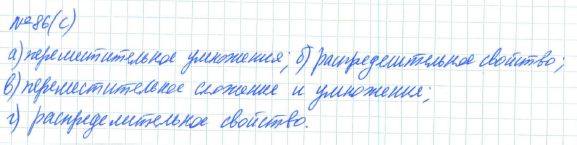 №86(с)
а) переместительное умножения; б) распределительное свойство;
в) переместительное сложение и умножение;
г) распределительное свойство.